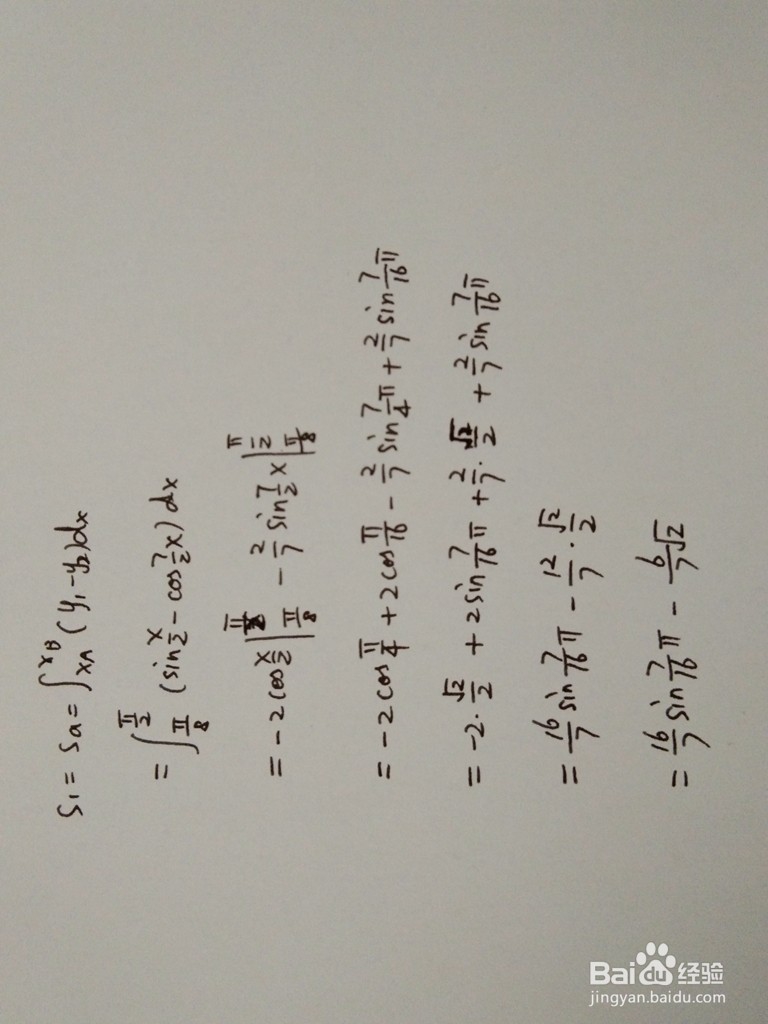 S₁ = Sa = ∫_{xA}^{xB} (y₁-y₂)dx
= ∫_{π/8}^{π/2} (sin x/2 - cos 7/2 x) dx
= -2cos x/2 |_{π/8}^{π/2} - 2/7 sin 7/2 x |_{π/8}^{π/2}
= -2cos π/4 + 2cos π/16 - 2/7 sin 7/4 π + 2/7 sin 7/16 π
= -2·√2/2 + 2sin 7/16 π + 2/7·√2/2 + 2/7 sin 7/16 π
= 16/7 sin 7/16 π - 12/7·√2/2
= 16/7 sin 7/16 π - 6/7 √2
Baidu经验
jingyan.baidu.com